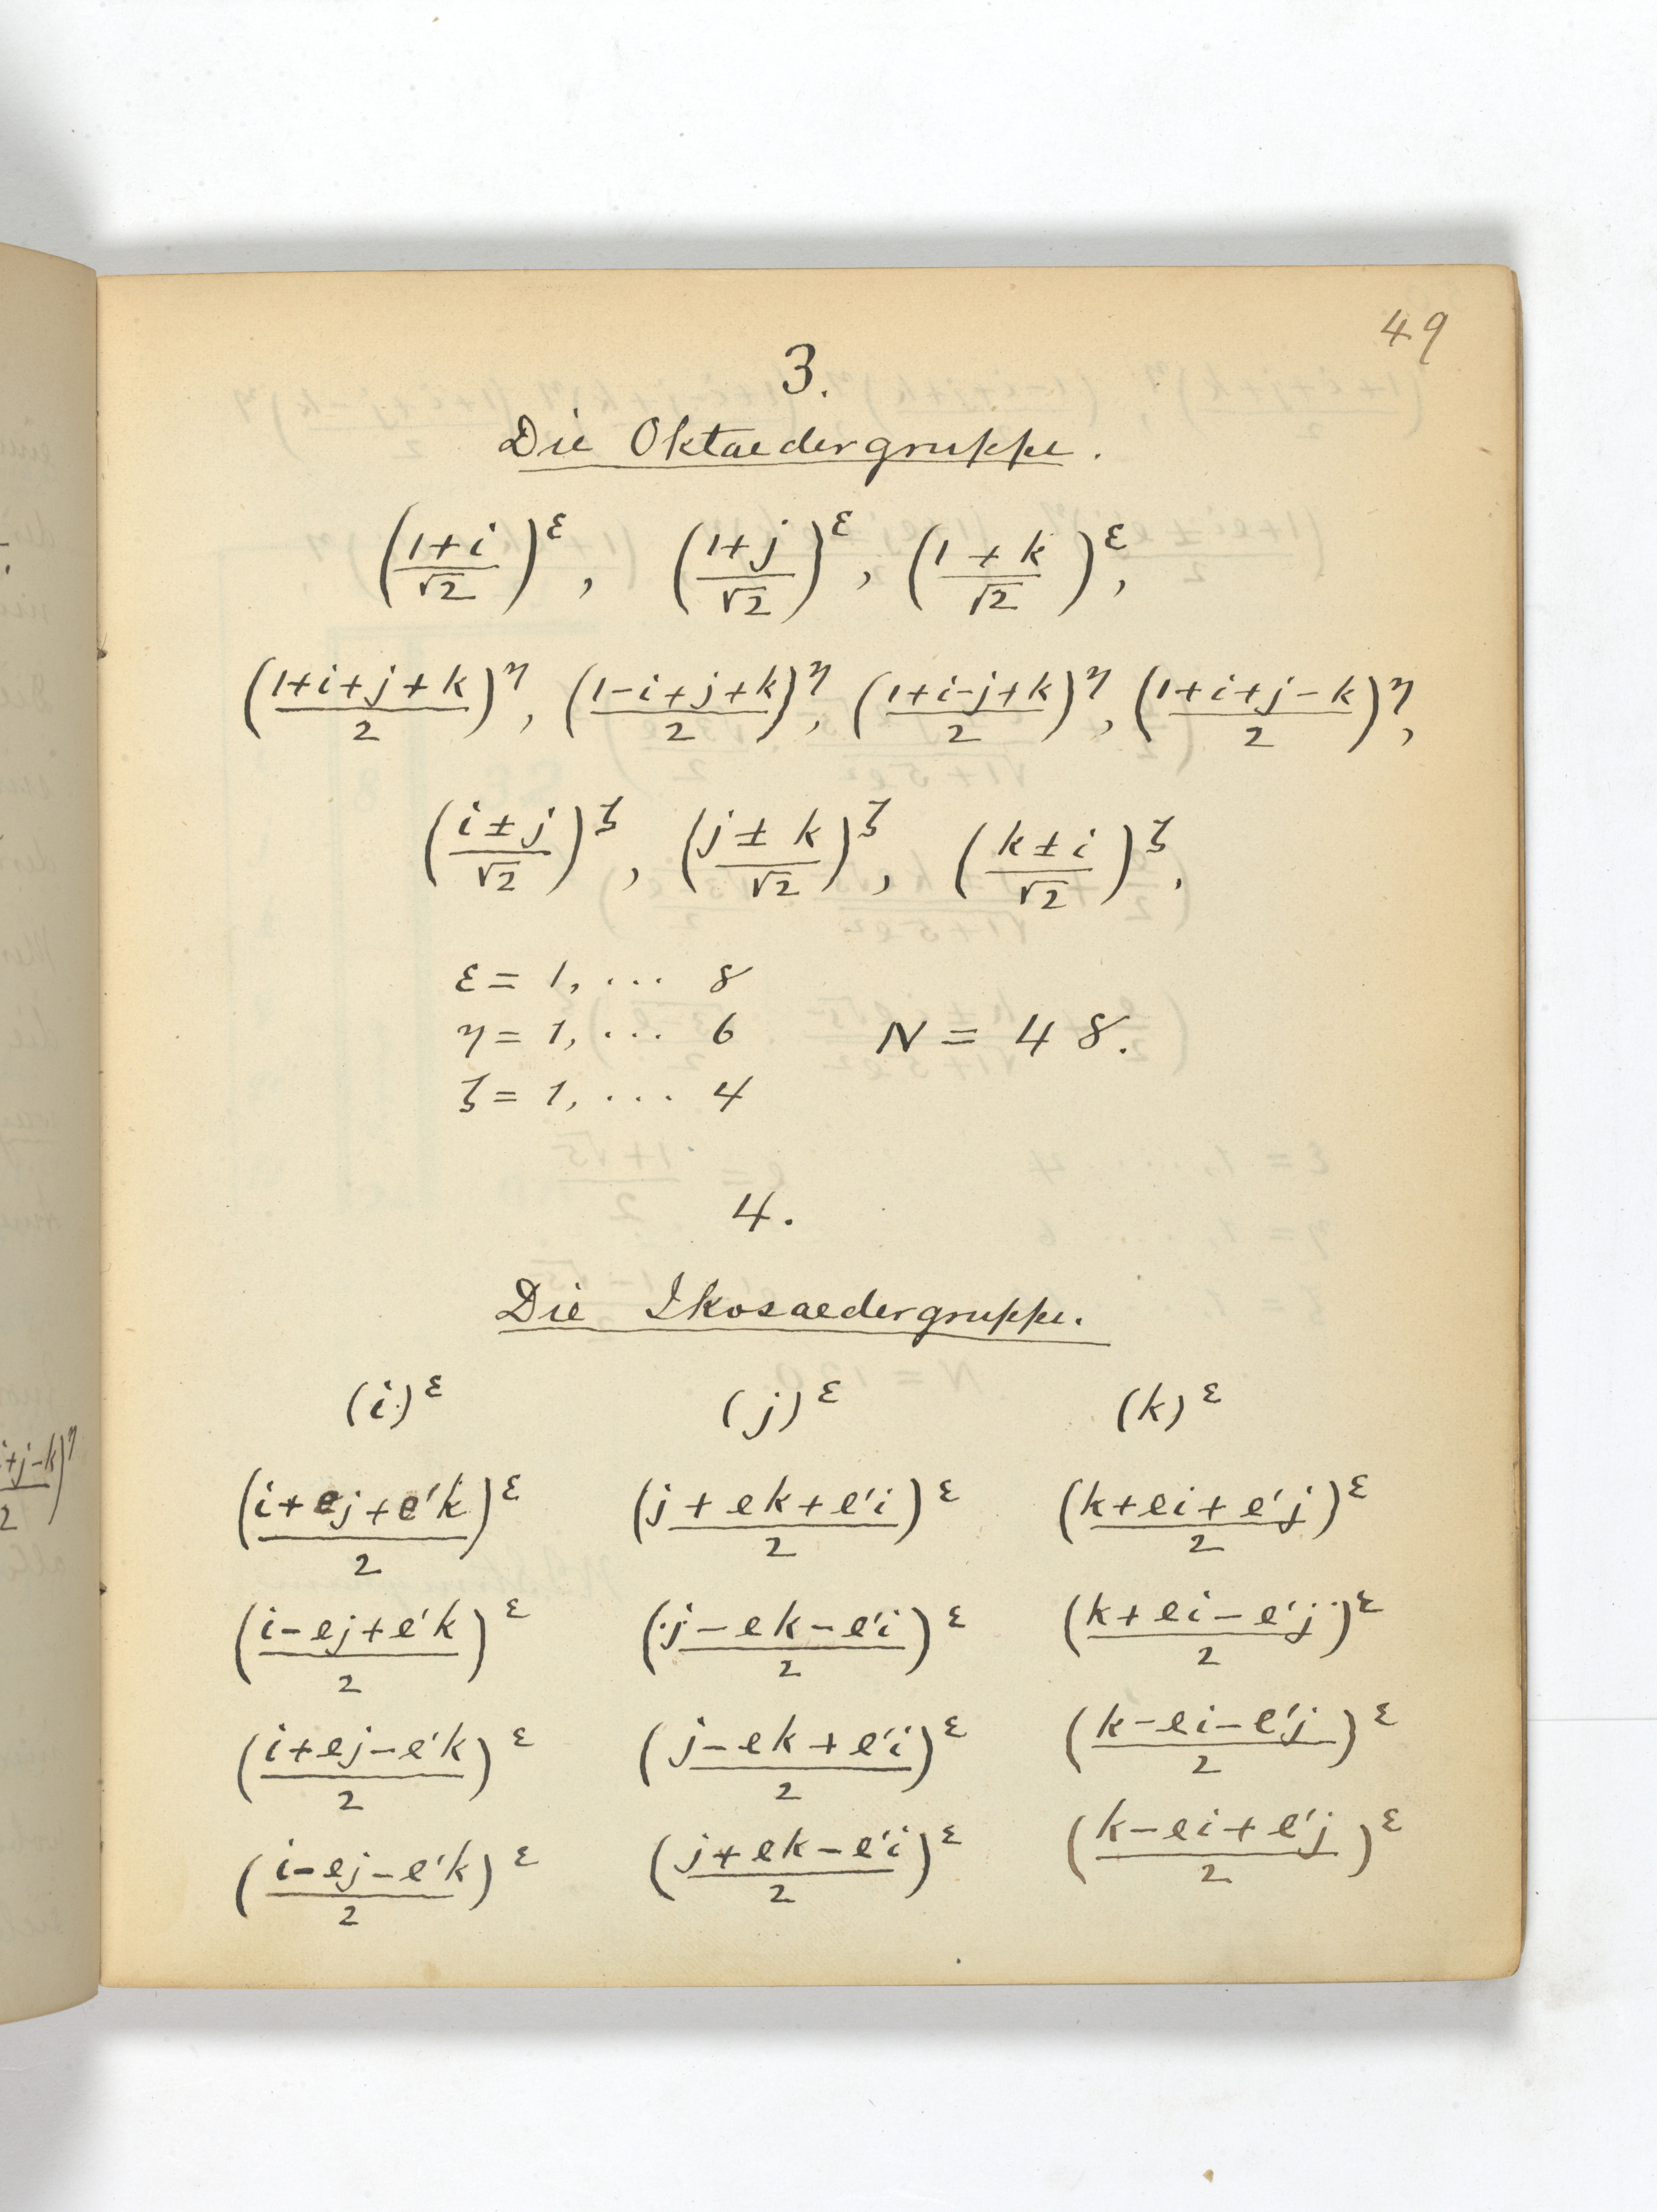 49
3.
Die Oktaedergruppe.
((1+i)/√2)^ε, ((1+j)/√2)^ε, ((1+k)/√2)^ε,
((1+i+j+k)/2)^η, ((1-i+j+k)/2)^η, ((1+i-j+k)/2)^η, ((1+i+j-k)/2)^η,
((i±j)/√2)^ζ, ((j±k)/√2)^ζ, ((k±i)/√2)^ζ,
ε = 1, ... 8
η = 1, ... 6 N = 48.
ζ = 1, ... 4
4.
Die Ikosaedergruppe.
(i)^ε (j)^ε (k)^ε
((i+ej+e'k)/2)^ε ((j+ek+e'i)/2)^ε ((k+ei+e'j)/2)^ε
((i-ej+e'k)/2)^ε ((j-ek-e'i)/2)^ε ((k+ei-e'j)/2)^ε
((i+ej-e'k)/2)^ε ((j-ek+e'i)/2)^ε ((k-ei-e'j)/2)^ε
((i-ej-e'k)/2)^ε ((j+ek-e'i)/2)^ε ((k-ei+e'j)/2)^ε